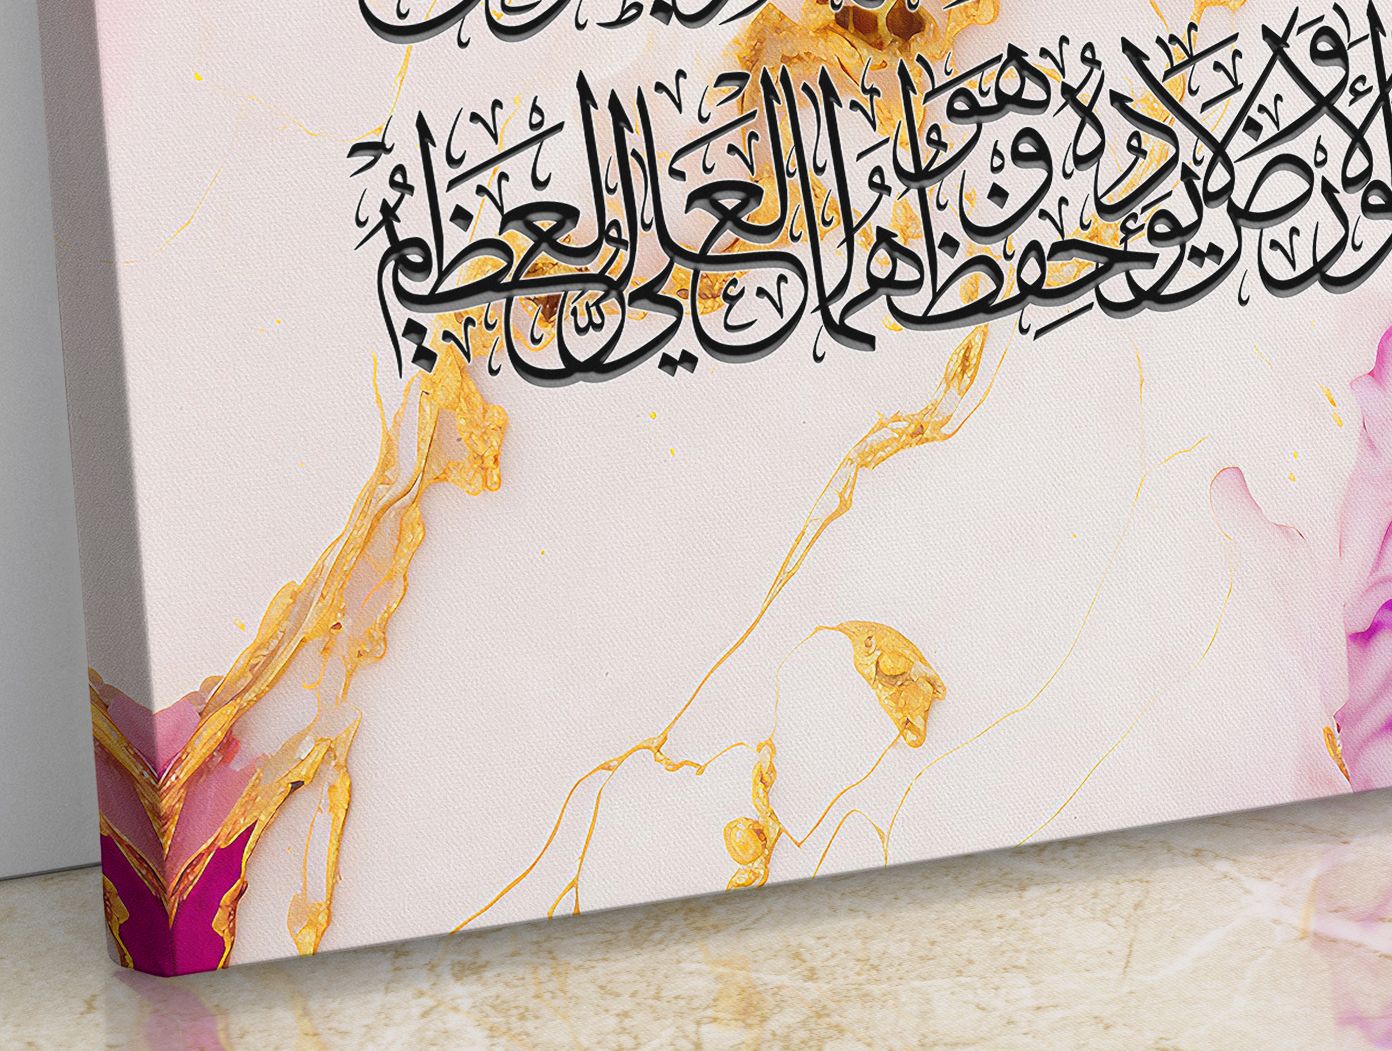 والأرض ولا يئوده حفظهما وهو العلي العظيم